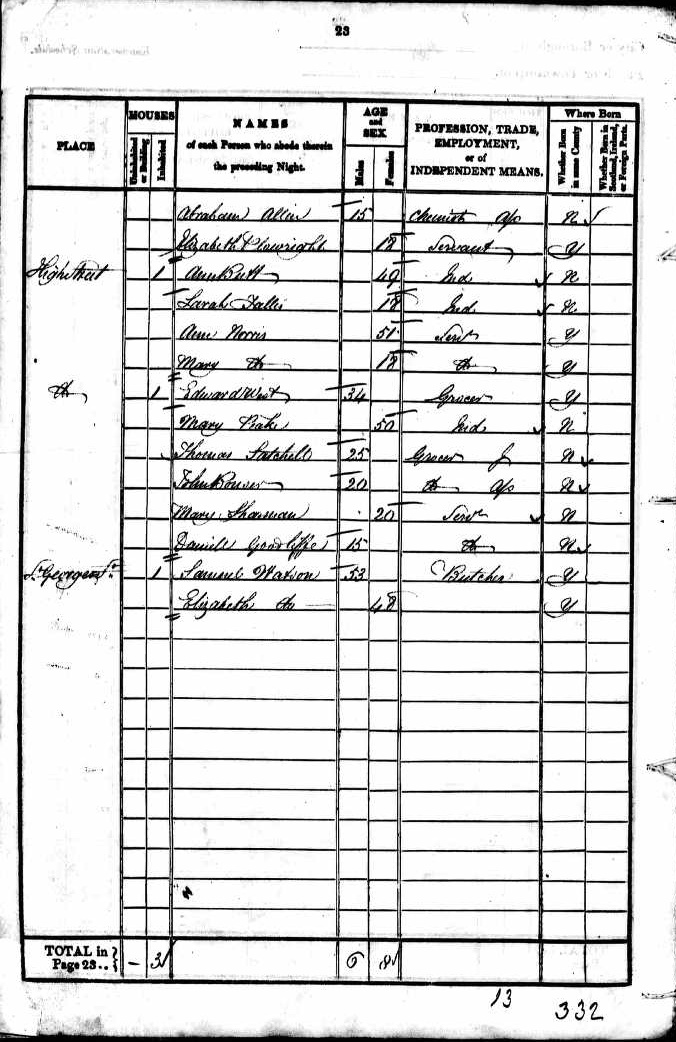 23
PLACE
HOUSES
Uninhabited or Building
Inhabited
NAMES
of each Person who abode therein the preceding Night.
AGE and SEX
Males
Females
PROFESSION, TRADE, EMPLOYMENT, or of INDEPENDENT MEANS.
Where Born
Whether Born in same County
Whether Born in Scotland, Ireland, or Foreign Parts.
Abraham Allin 15 Chemist Ap N
Elizabeth Plowright 18 Servant Y
High Street 1 Ann Butt 49 Ind N
Sarah 18 Ind N
Ann Norris 51 Servt Y
Mary Do 18 Do Y
Do 1 Edward West 34 Grocer Y
Mary Peake 50 Ind N
Thomas Satchell 25 Grocer J N
John Bonser 20 Do Ap N
Mary Sharman 20 Servt N
Daniell Goodliffe 15 Do N
St Georges St 1 Samuel Watson 53 Butcher Y
Elizabeth Do 48 Y
TOTAL in Page 23.. } – 3 6 8
13 332